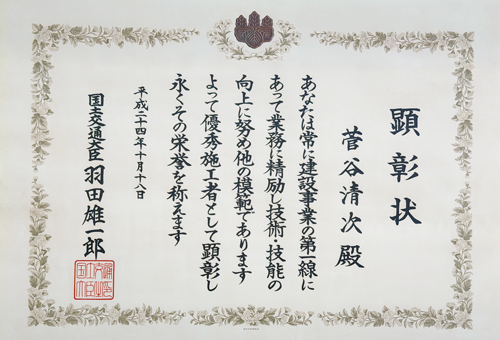 顕彰状
菅谷清次殿
あなたは常に建設事業の第一線に
あって業務に精励し技術・技能の
向上に努め他の模範であります
よって優秀施工者として顕彰し
永くその栄誉を称えます
平成二十四年十月十八日
国土交通大臣 羽田雄一郎